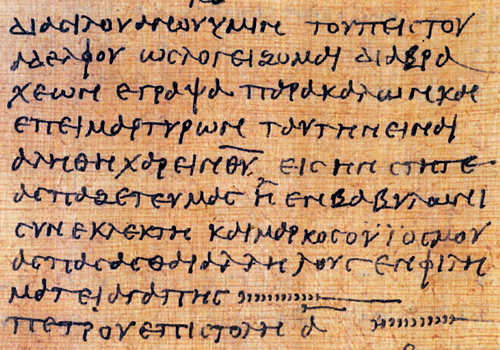 ΔΙΑ ϹΙΛΟΥΑΝΟΥ ΥΜΙΝ ΤΟΥ ΠΕΙϹΤΟΥ
ΑΔΕΛΦΟΥ ΩϹ ΛΟΓΕΙΖΟΜΑΙ ΔΙΑ ΒΡΑ
ΧΕΩΝ ΕΓΡΑΨΑ ΠΑΡΑΚΑΛΩΝ ΚΑΙ
ΕΠΕΙΜΑΡΤΥΡΩΝ ΤΑΥΤΗΝ ΕΙΝΑΙ
ΑΛΗΘΗ ΧΑΡΕΙΝ Θ̅Υ̅ ΕΙϹ ΗΝ ϹΤΗΤΕ
ΑϹΠΑΖΕΤΕ ΥΜΑϹ Η ΕΝ ΒΑΒΥΛΩΝΙ
ϹΥΝΕΚΛΕΚΤΗ ΚΑΙ ΜΑΡΚΟϹ Ο ΥΙΟϹ ΜΟΥ
ΑϹΠΑϹΑϹΘΑΙ ΑΛΛΗΛΟΥϹ ΕΝ ΦΙΛΗ
ΜΑΤΕΙ ΑΓΑΠΗϹ
ΠΕΤΡΟΥ ΕΠΙϹΤΟΛΗ Α̅